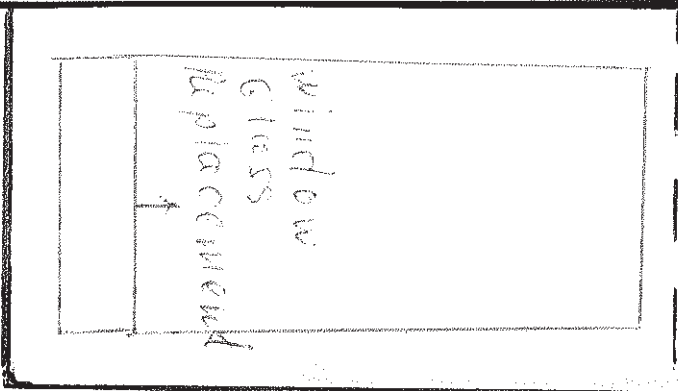 Window
Glass
Replacement